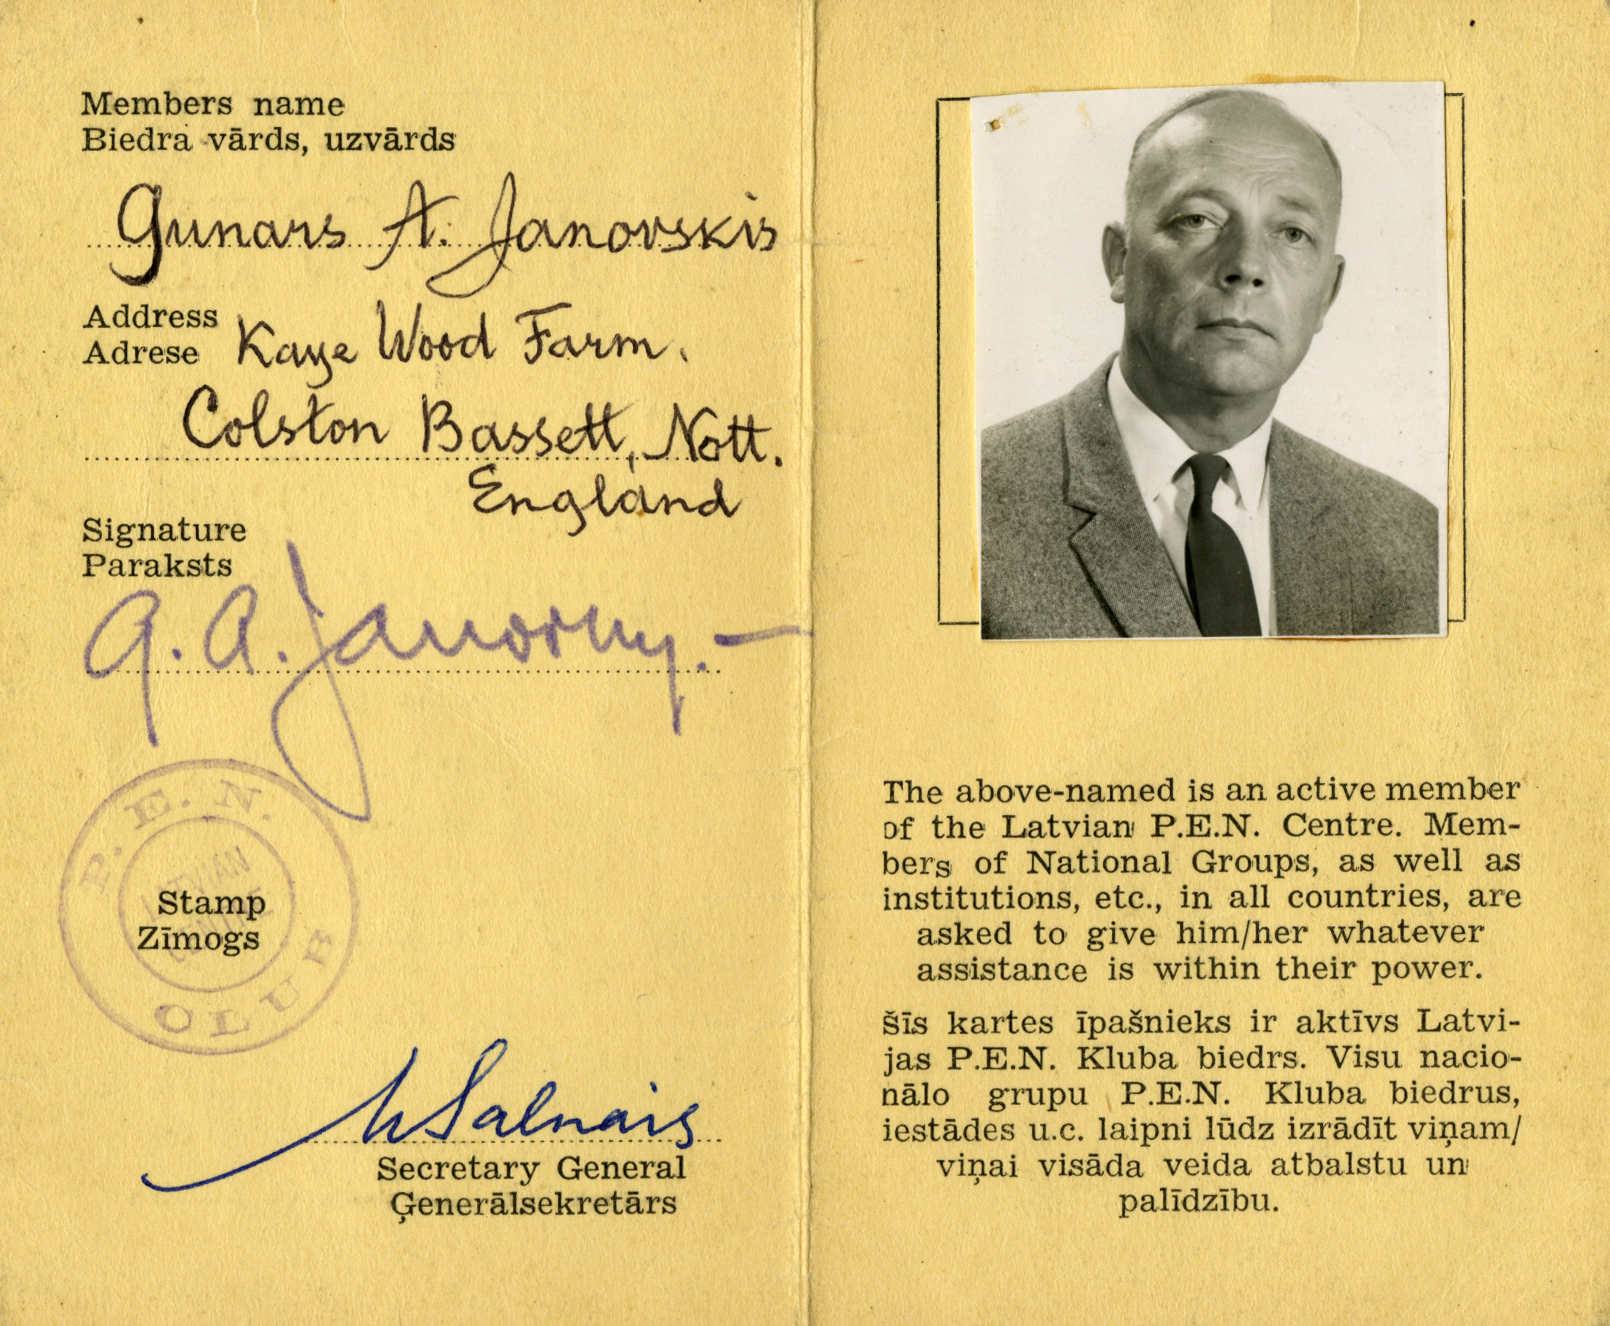 Members name
Biedra vārds, uzvārds
Gunars A. Janovskis
Address
Adrese Kaye Wood Farm.
Colston Bassett, Nott.
England
Signature
Paraksts
G. A. Janovskij.
P.E.N.
LATVIAN
CENTRE
CLUB
Stamp
Zīmogs
Salnais
Secretary General
Ģenerālsekretārs
The above-named is an active member
of the Latvian P.E.N. Centre. Mem-
bers of National Groups, as well as
institutions, etc., in all countries, are
asked to give him/her whatever
assistance is within their power.
Šīs kartes īpašnieks ir aktīvs Latvi-
jas P.E.N. Kluba biedrs. Visu nacio-
nālo grupu P.E.N. Kluba biedrus,
iestādes u.c. laipni lūdz izrādīt viņam/
viņai visāda veida atbalstu un
palīdzību.